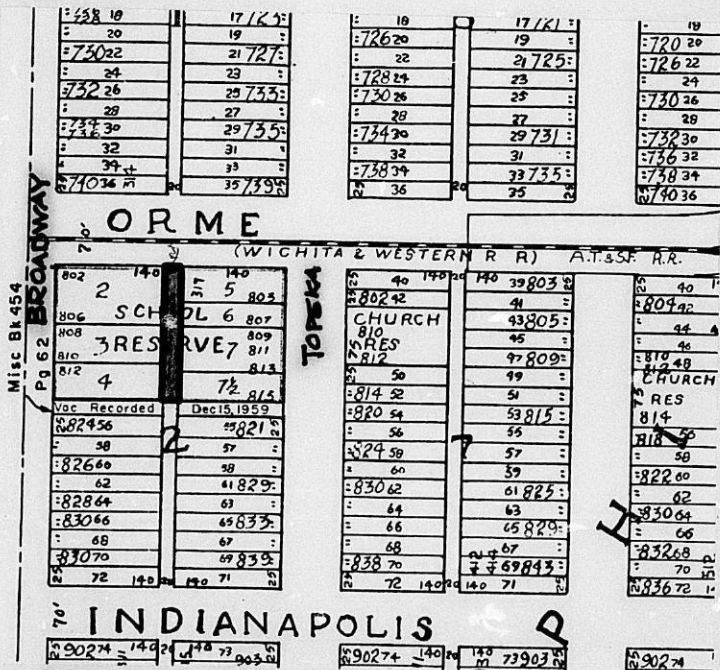 738 18
20
:73022
24
:732 26
28
734
736 30
32
34
25 74036
17 723
19
21 727:
23
25 733:
27
29 735:
31
33
35 739
18
:72620
22
:728 24
:730 26
28
:73430
32
:738 34
25 36
20
17 721
19
21 725:
23
25
27
29 731
31
33 735:
35 25
18
:720 20
:726 22
24
:730 26
28
:73230
:736 32
:738 34
25 74036
ORME
70'
(WICHITA & WESTERN R R) A.T.&S.F. R.R.
BROADWAY
Misc Bk 454
Pg 62
TOPEKA
802 140
2
806
808
810
812
SCHOOL
3 RESERVE 7
4
140
317 5 803
6 807
809
811
813
7½ 815
Voc Recorded Dec 15, 1959
25 82456
58
:82660
62
:82864
:83066
68
:83070
25 72 140 20
2
55 821 25
57
58
61 829:
63
65 833:
67
69 839:
140 71 25
25 40 140 20
:802 42
CHURCH
810
75 RES
812
50
:814 52
:820 54
56
:824 58
60
:830 62
64
66
68
:838 70
25 72 140 20
7
140 39 803 25
41
43 805:
45
47 809:
49
51
53 815:
55
57
59
61 825:
63
65 829:
67
412
414 69 843:
140 71 25
25 40
:804 42
44
46
:810 48
812
CHURCH
75 RES
814
818 56
58
:822 60
62
:830 64
66
:832 68
70
25 836 72
512
H
P
70'
INDIANAPOLIS
25 902 74 140 20
140 73 903 25
25 902 74 140 20
140 73 903 25
25 902 74